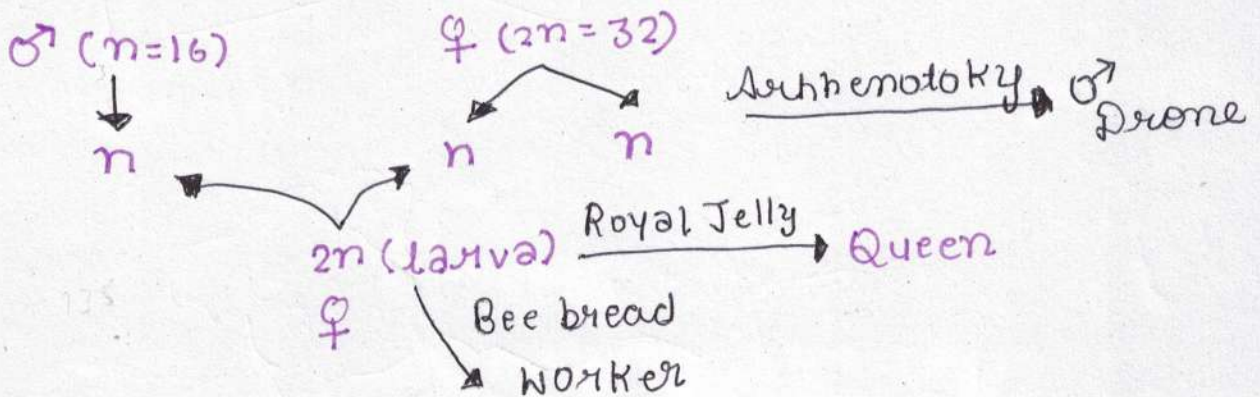 ♂ (n=16)
♀ (2n=32)
Arhhenotoky
♂
Drone
n
n
n
2n (larva)
Royal Jelly
Queen
♀
Bee bread
Worker